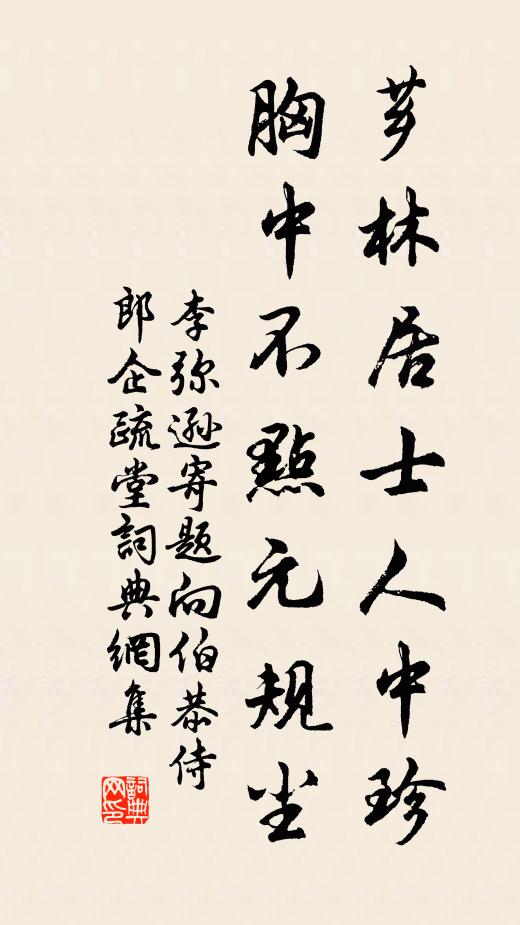 芗林居士人中珍
胸中不點元規尘
李弥遜寄題向伯恭侍
郎企疏堂詞典網集
詞典
网印